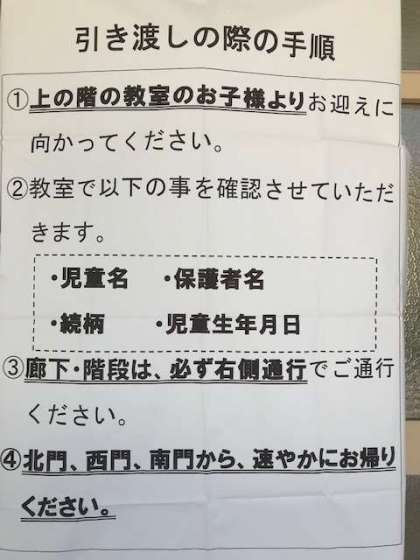 引き渡しの際の手順
①上の階の教室のお子様よりお迎えに
向かってください。
②教室で以下の事を確認させていただ
きます。
・児童名　・保護者名
・続柄　・児童生年月日
③廊下・階段は、必ず右側通行でご通行
ください。
④北門、西門、南門から、速やかにお帰り
ください。